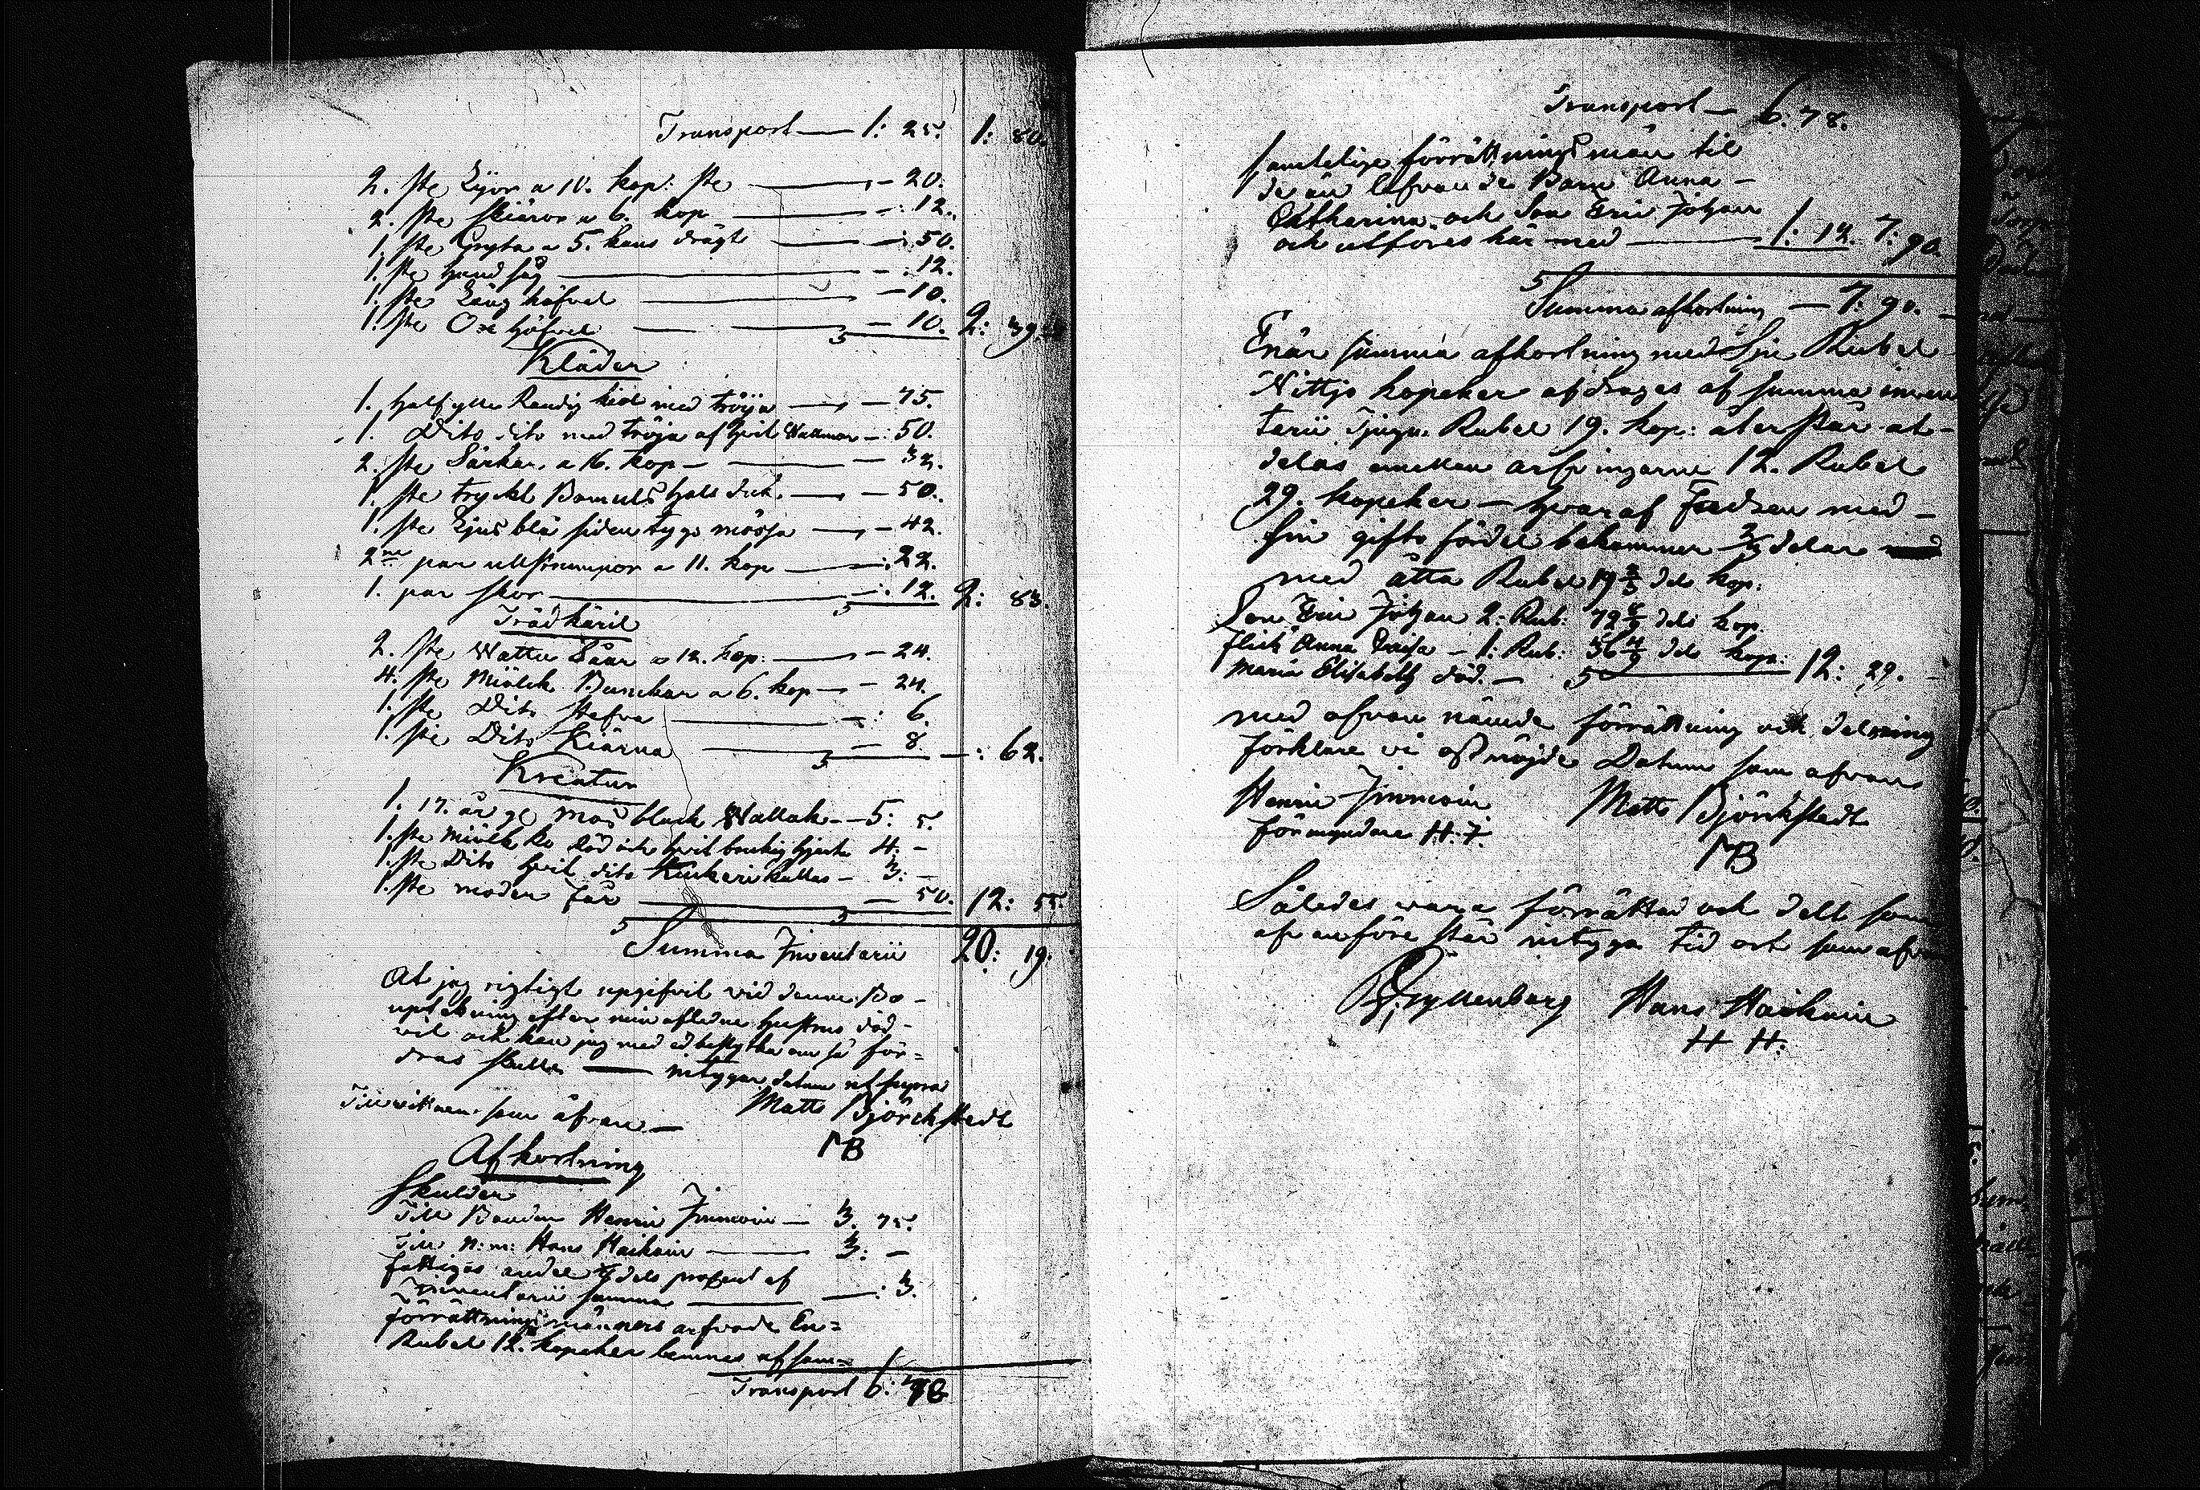 Transport — 1: 25. 1: 80.
2. ste Lijor a 10. kop: ste — 20.
2. ste skiäror a 6. kop — 12.
1. ste Gryta a 5. kans drägt — 50.
1. ste hand såg — 12.
1. ste Lång häfvel — 10.
1. ste Oxe häfvel — 10. 2: 39.
Kläder
1. half ylle Randig kiol med tröija — 75.
1. Dito dito med tröja af hvit Wallmar — 50.
2. ste Särkar a 16. kop — 32.
1. ste tryckt Bomuls hals duk — 50.
1. ste Ljus blå siden tygs mössa — 42.
2ne par ullstrumpor a 11. kop — 22.
1. par skor — 12. 2: 83.
Trädkäril
2. ste Wattu Såar a 12. kop: — 24.
4. ste Miölck Bunckar a 6. kop — 24.
1. ste Dito Stäfva — 6.
1. ste Dito Kiärna — 8 — : 62.
Kreatur
1. 17. år ge mos black Wallak — 5: 5.
1. ste Miölk ko Röd och hvit bandig hjert 4. —
1. ste Dito hvit dito Kuckeri kallas — 3: —
1. ste moder Får — 50. 12: 55.
Summa Inventarii 20: 19.
At jag rigtigt upgifvit vid denna Bo-
upteckning efter min afledne hustrus död-
vit och kan jag med ed bestyrka om så for=
dras skulle — intygar datum ut supra
Matts Björckstedt
Till vittnen som åfvan — MB
Afkortning
Skulder
Till Bonden Henric Immoin — 3. 75.
Till N: m: Hans Haikain — 3: —
fattigas andel dels procent af
Inventarii summa — : 3.
Förrättnings männers arfvode En=
Rubel 12. kopeker lemnas af sam=
Transport 6: 78
Transport — 6: 78.
samtelige förrättnings män til
de än lefvande Barn Anna —
Catharina och Son Eric Johan
och utföres här med — 1: 12. 7: 90.
Summa afkortning — 7: 90.
Enär summa afkortning med Sju Rubel
Nittjo kopeker afdrages af summa inven
terii Tjugu Rubel 19. kop: återstår at-
delas emellan arfvingarne 12. Rubel
29. kopeker — hvaraf Fadren med —
sin gifto fördel bekommer 2/3 delar
med åtta Rubel 19 1/3 dels kop:
Son Eric Johan 2: Rub: 72 8/9 dels kop.
flick Anna Caisa — 1: Rub: 36 4/9 dels kop: 12: 29.
Maria Elisabeth död. —
med ofvan nämde förrättning och delning
förklare vi oss nöjde Datum som ofvan
Henric Immoin Matts Björkstedt
förmyndare H. I. MB
Således vara förrättad och delt som
ofvanföre står intyga tid ort som ofvan
Gyllenberg Hans Haikain
H H.